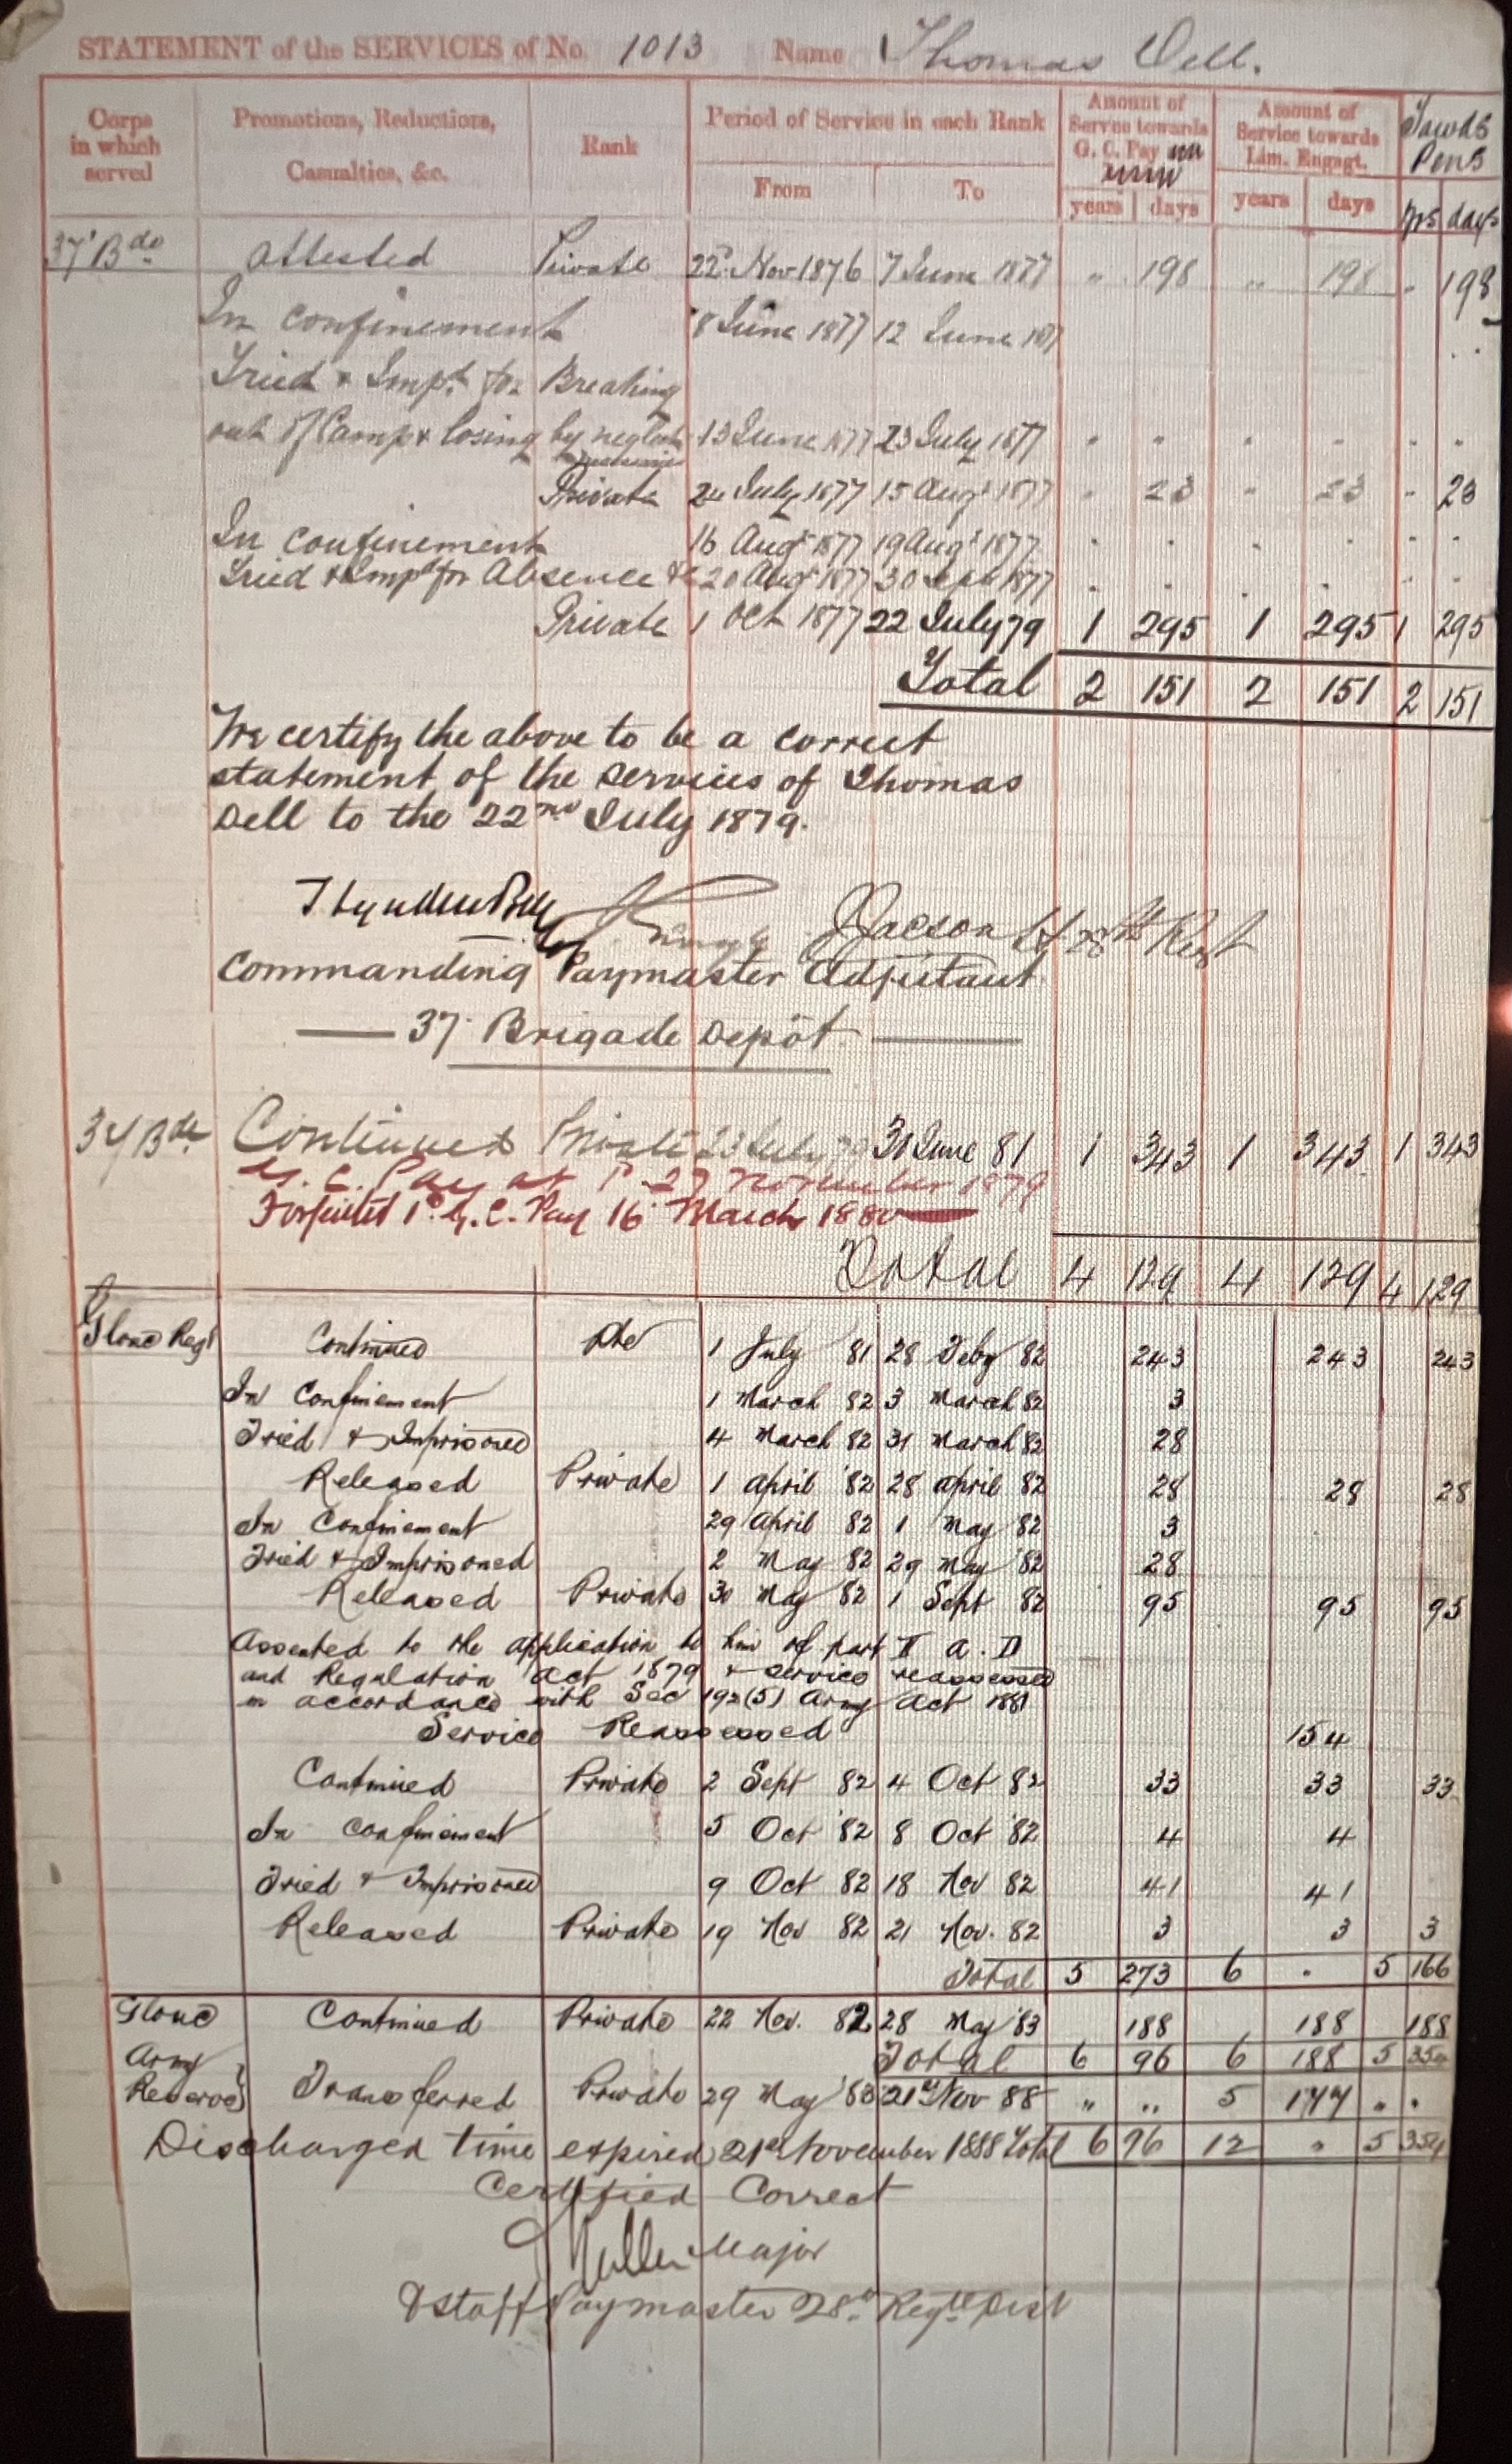 STATEMENT of the SERVICES of No. 1013 Name Thomas Dell.
Corps in which served
Promotions, Reductions, Casualties, &c.
Rank
Period of Service in each Rank
From To
Amount of Service towards G. C. Pay
years days
Amount of Service towards Lim. Engagt.
years days
Towds Pens
yrs days
37 Bde Attested Private 22 Nov 1876 7 June 1877 " 198 " 198 " 198
In confinement 8 June 1877 12 June 1877
Tried & Impd for Breaking
out of Camp & losing by neglect 13 June 1877 23 July 1877 " " " " " "
Private 24 July 1877 15 Augt 1877 " 23 " 23 " 23
In confinement 16 Augt 1877 19 Augt 1877 " " " " " "
Tried & Impd for Absence &c 20 Augt 1877 30 Sept 1877 " " " " " "
Private 1 Oct 1877 22 July 79 1 295 1 295 1 295
Total 2 151 2 151 2 151
We certify the above to be a correct
statement of the services of Thomas
Dell to the 22nd July 1879.
J Jacson Lt 28th Regt
Commanding Paymaster Adjutant
— 37 Brigade Depôt —
37 Bde Continued Private 23 July 79 30 June 81 1 343 1 343 1 343
G. C. Pay at 1d 27 November 1879
Forfeited 1d G. C. Pay 16 March 1880
Total 4 129 4 129 4 129
Glouc Regt Continued Pte 1 July 81 28 Feby 82 243 243 243
In Confinement 1 March 82 3 March 82 3
Tried & Imprisoned 4 March 82 31 March 82 28
Released Private 1 April '82 28 April 82 28 28 28
In Confinement 29 April 82 1 May 82 3
Tried & Imprisoned 2 May 82 29 May '82 28
Released Private 30 May 82 1 Sept 82 95 95 95
Assented to the application to him of part II A. D
and Regulation Act 1879 & service reassessed
in accordance with Sec 192(5) Army Act 1881
Service Reassessed 154
Continued Private 2 Sept 82 4 Oct 82 33 33 33
In Confinement 5 Oct '82 8 Oct '82 4 4
Tried & Imprisoned 9 Oct 82 18 Nov 82 41 41
Released Private 19 Nov 82 21 Nov. 82 3 3 3
Total 5 273 6 . 5 166
Glouc Continued Private 22 Nov. 82 28 May '83 188 188 188
Total 6 96 6 188 5 354
Army Reserve } Transferred Private 29 May '83 21st Nov 88 " " 5 177 " "
Discharged time expired 21st November 1888 Total 6 96 12 " 5 354
Certified Correct
Major
& Staff Paymaster 28th Regtl Dist